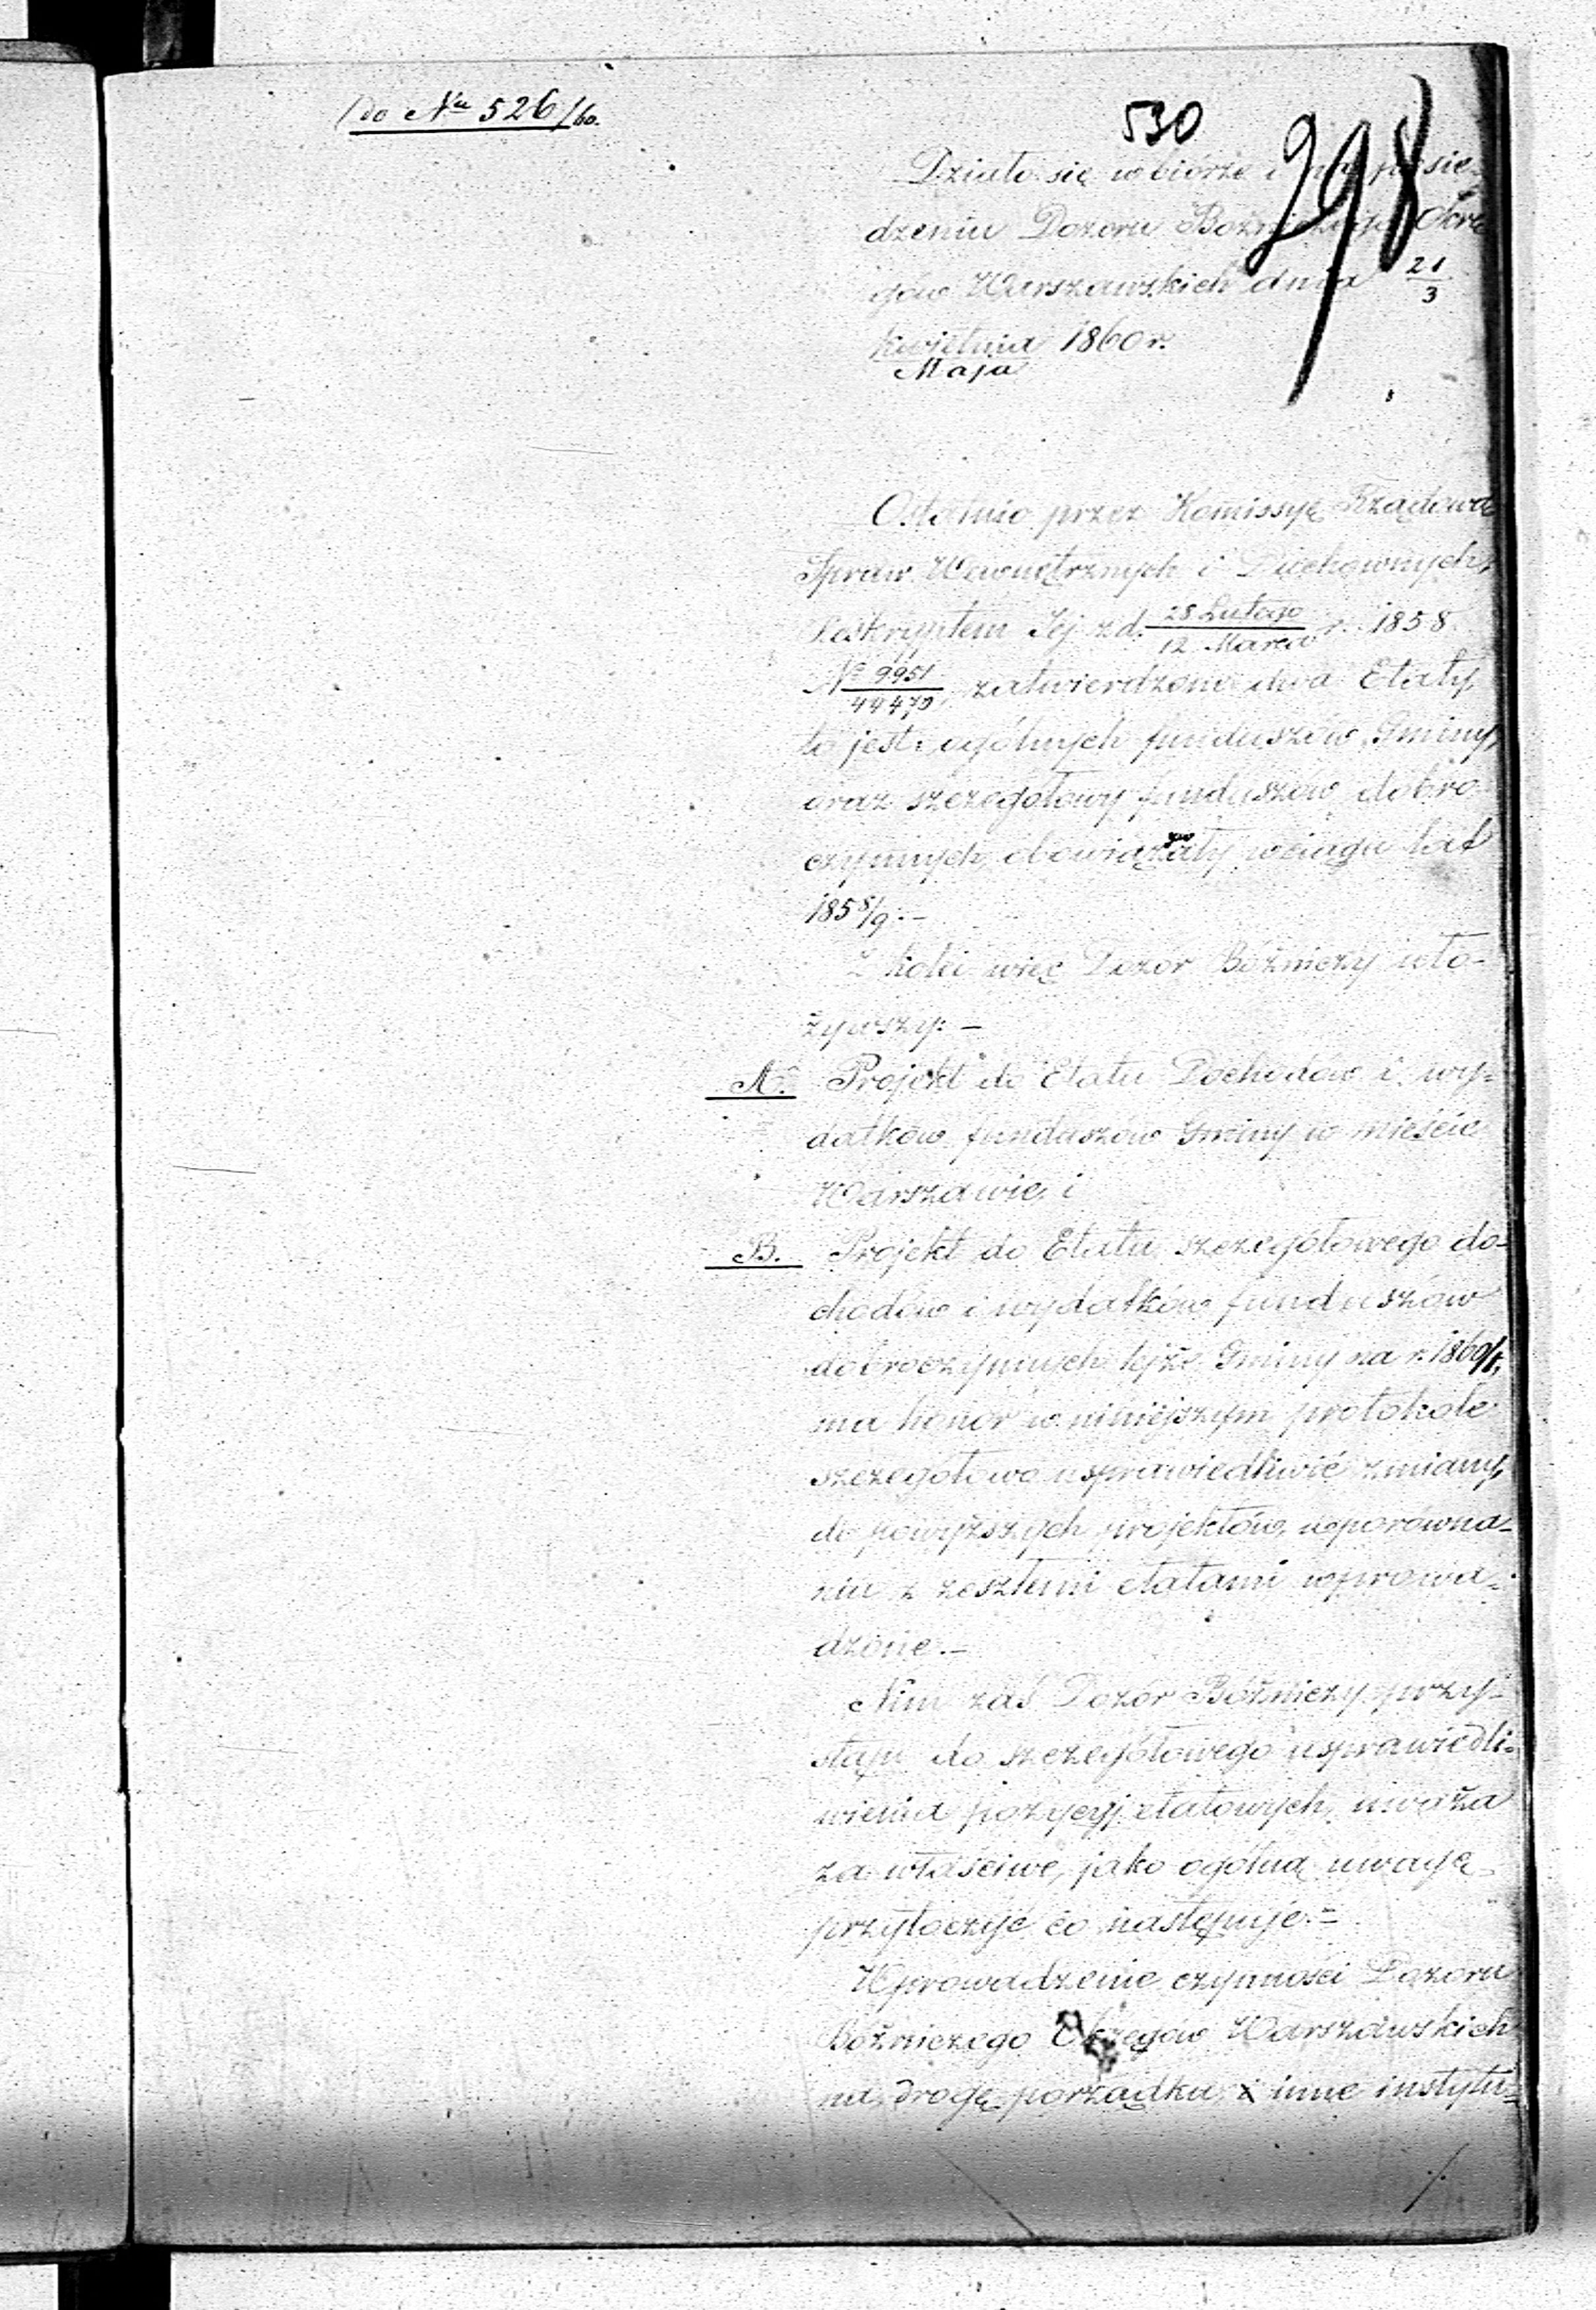 Do Nru 526/60.
530
298
Działo się w biórze i na posie-
dzeniu Dozoru Bożniczego Okrę
gów Warszawskich dnia 21/3
Kwietnia/Maja 1860 r.
Ostatnio przez Kommissyę Rządową
Spraw Wewnętrznych i Duchownych,
Reskryptem Jej z d. 28 Lutego/12 Marca r. 1858
No 9951/44470, zatwierdzone dwa Etaty,
to jest: ogólnych funduszów Gminy,
oraz szczegółowy funduszów dobro
czynnych, obowiązywały w ciągu lat
1858/9.-
Z kolei więc Dozór Bóżniczy uło-
żywszy:-
A. Projekt do Etatu Dochodów i wy-
datków funduszów Gminy w mieście
Warszawie, i
B. Projekt do Etatu szczegółowego do-
chodów i wydatków funduszów
dobroczynnych tejże Gminy na r. 1860/1,
ma honor w niniejszym protokole
szczegółowo usprawiedliwić zmiany,
do powyższych projektów, w porówna-
niu z zeszłemi etatami wprowa-
dzone.-
Nim zaś Dozór Bóżniczy przy-
stąpi do szczegółowego usprawiedli-
wienia pozycyj etatowych, uważa
za właściwe, jako ogólną uwagę
przytoczyć co następuje:-
Wprowadzenie czynności Dozoru
Bóżniczego Okręgów Warszawskich
na drogę porządku, i inne instytu-